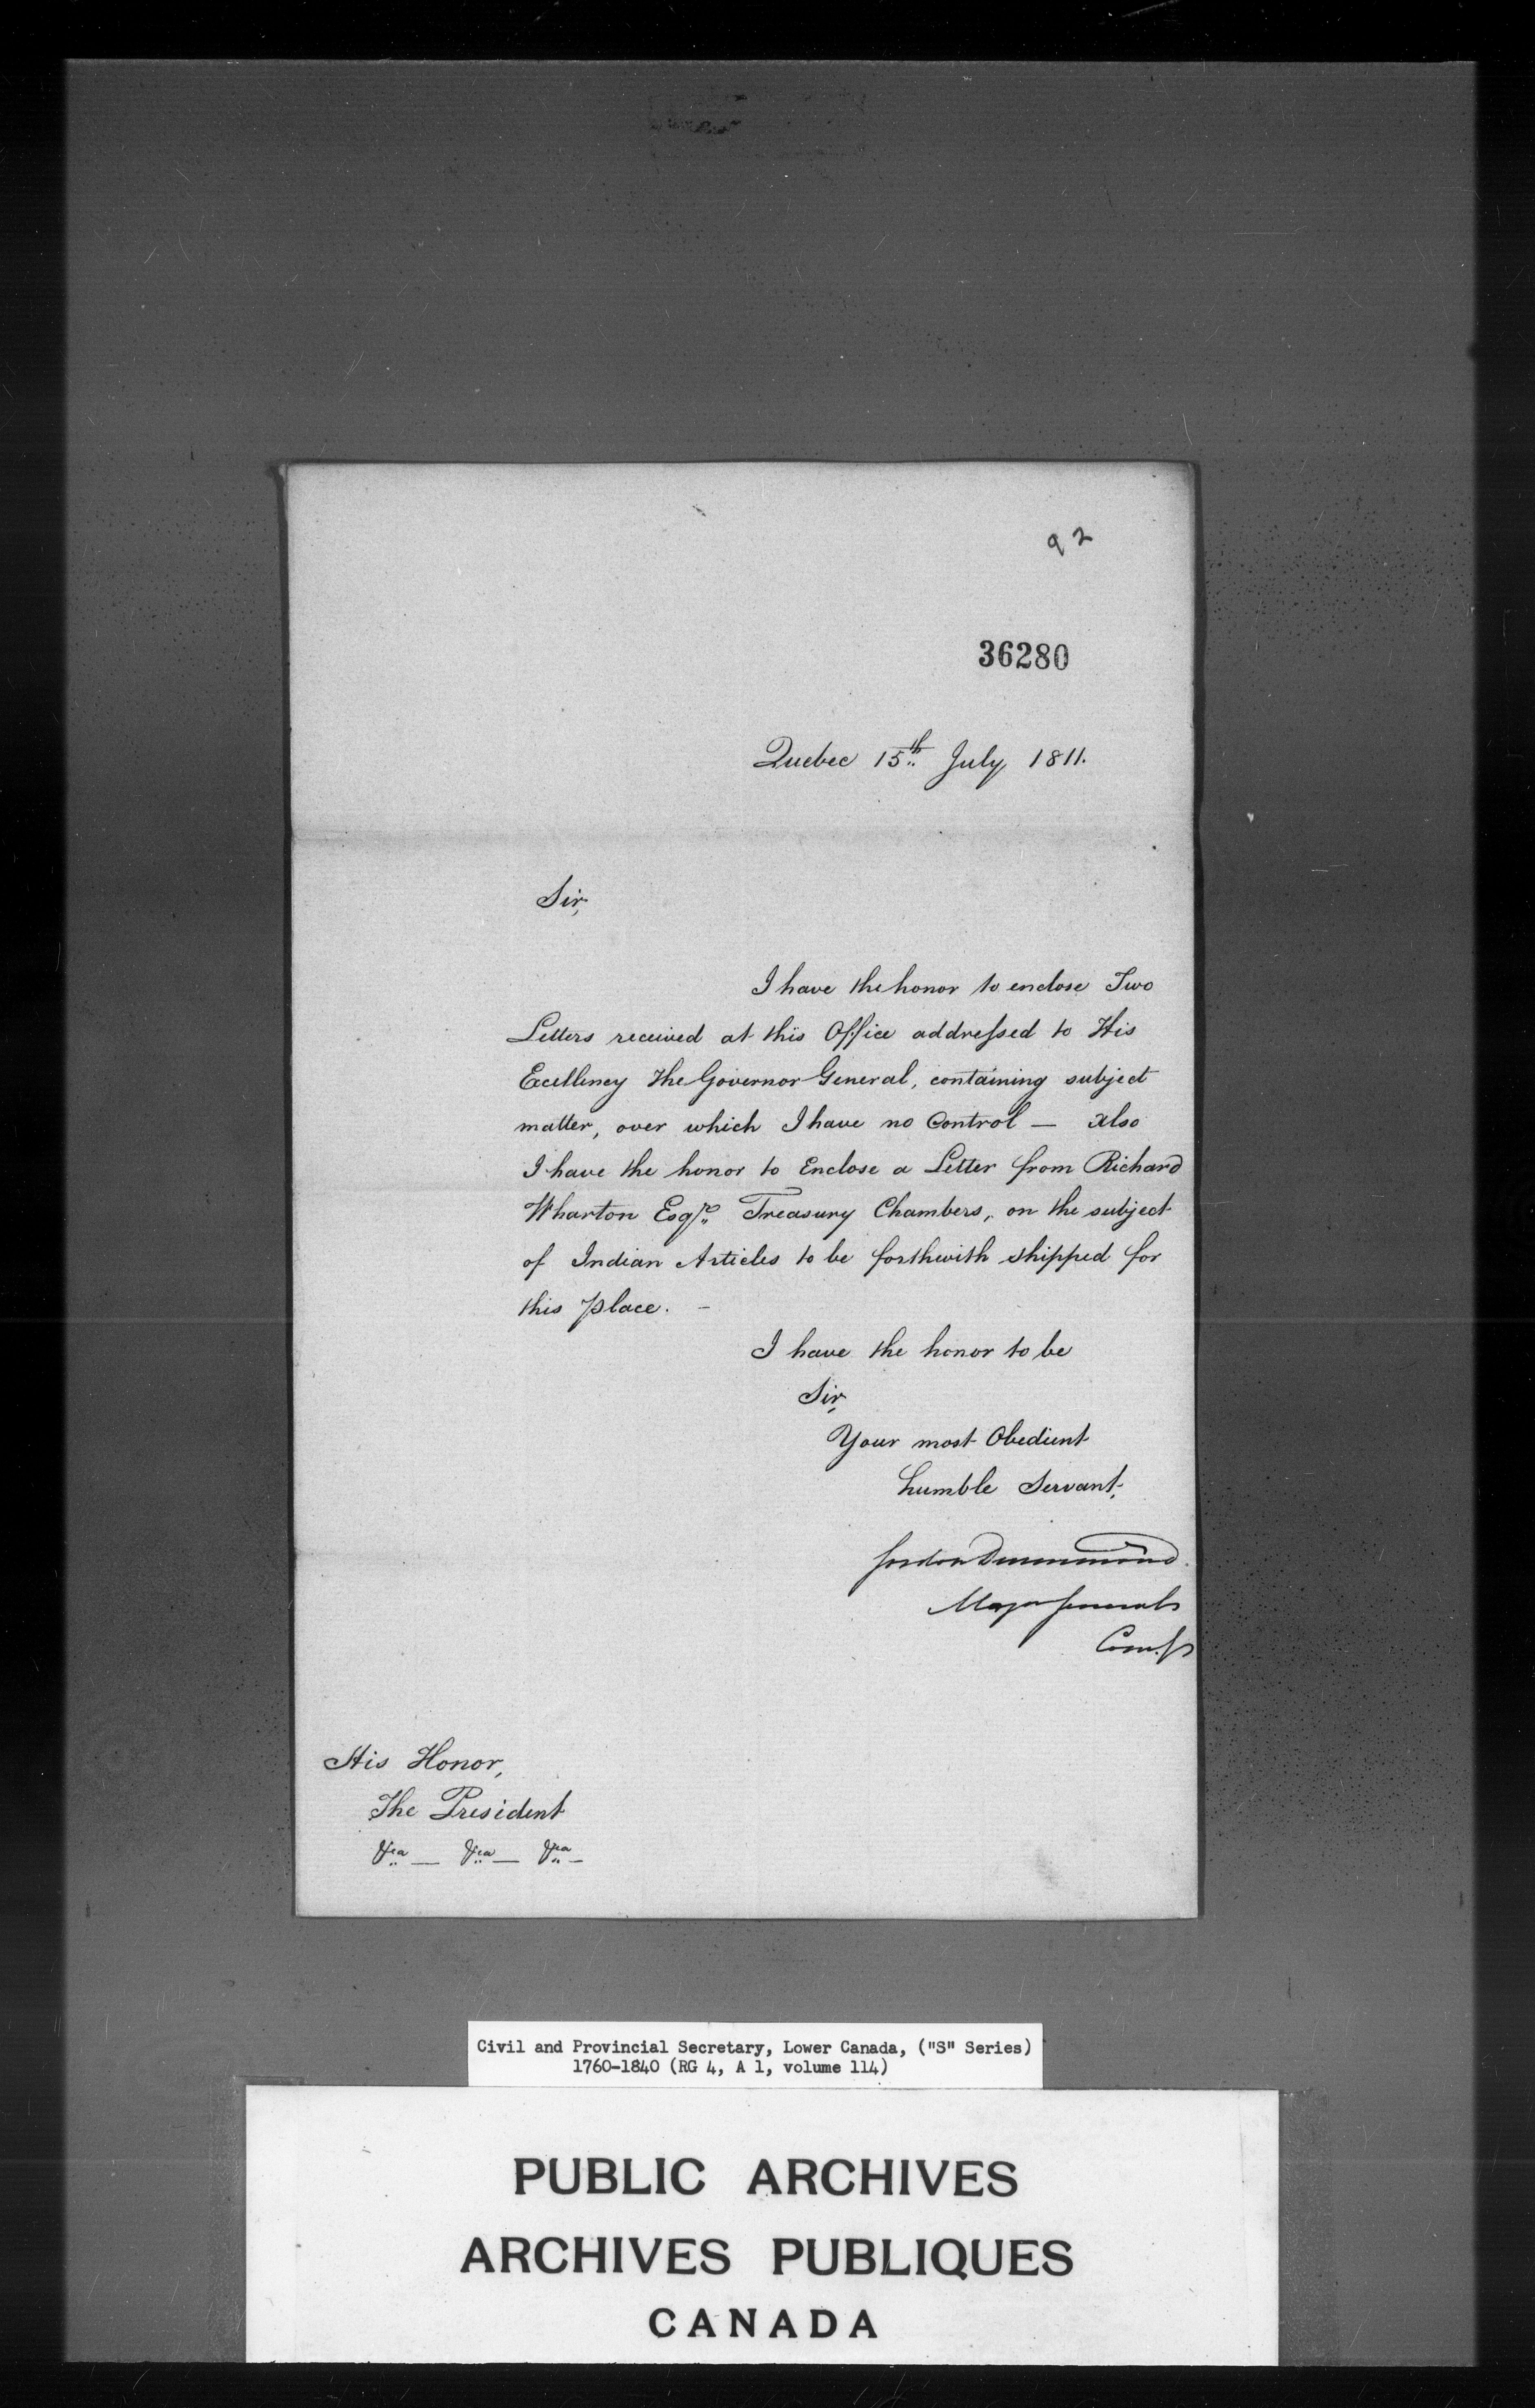 92
36280
Quebec 15th July 1811.
Sir,
I have the honor to enclose Two
Letters received at this Office addressed to His
Excellency The Governor General, containing subject
matter, over which I have no Control — Also
I have the honor to Enclose a Letter from Richard
Wharton Esqre. Treasury Chambers, on the subject
of Indian Articles to be forthwith shipped for
this place. –
I have the honor to be
Sir,
Your most Obedient
humble Servant,
Gordon Drummond
Major General
His Honor,
The President
&ca — &ca — &ca –
Civil and Provincial Secretary, Lower Canada, ("S" Series)
1760-1840 (RG 4, A 1, volume 114)
PUBLIC ARCHIVES
ARCHIVES PUBLIQUES
CANADA